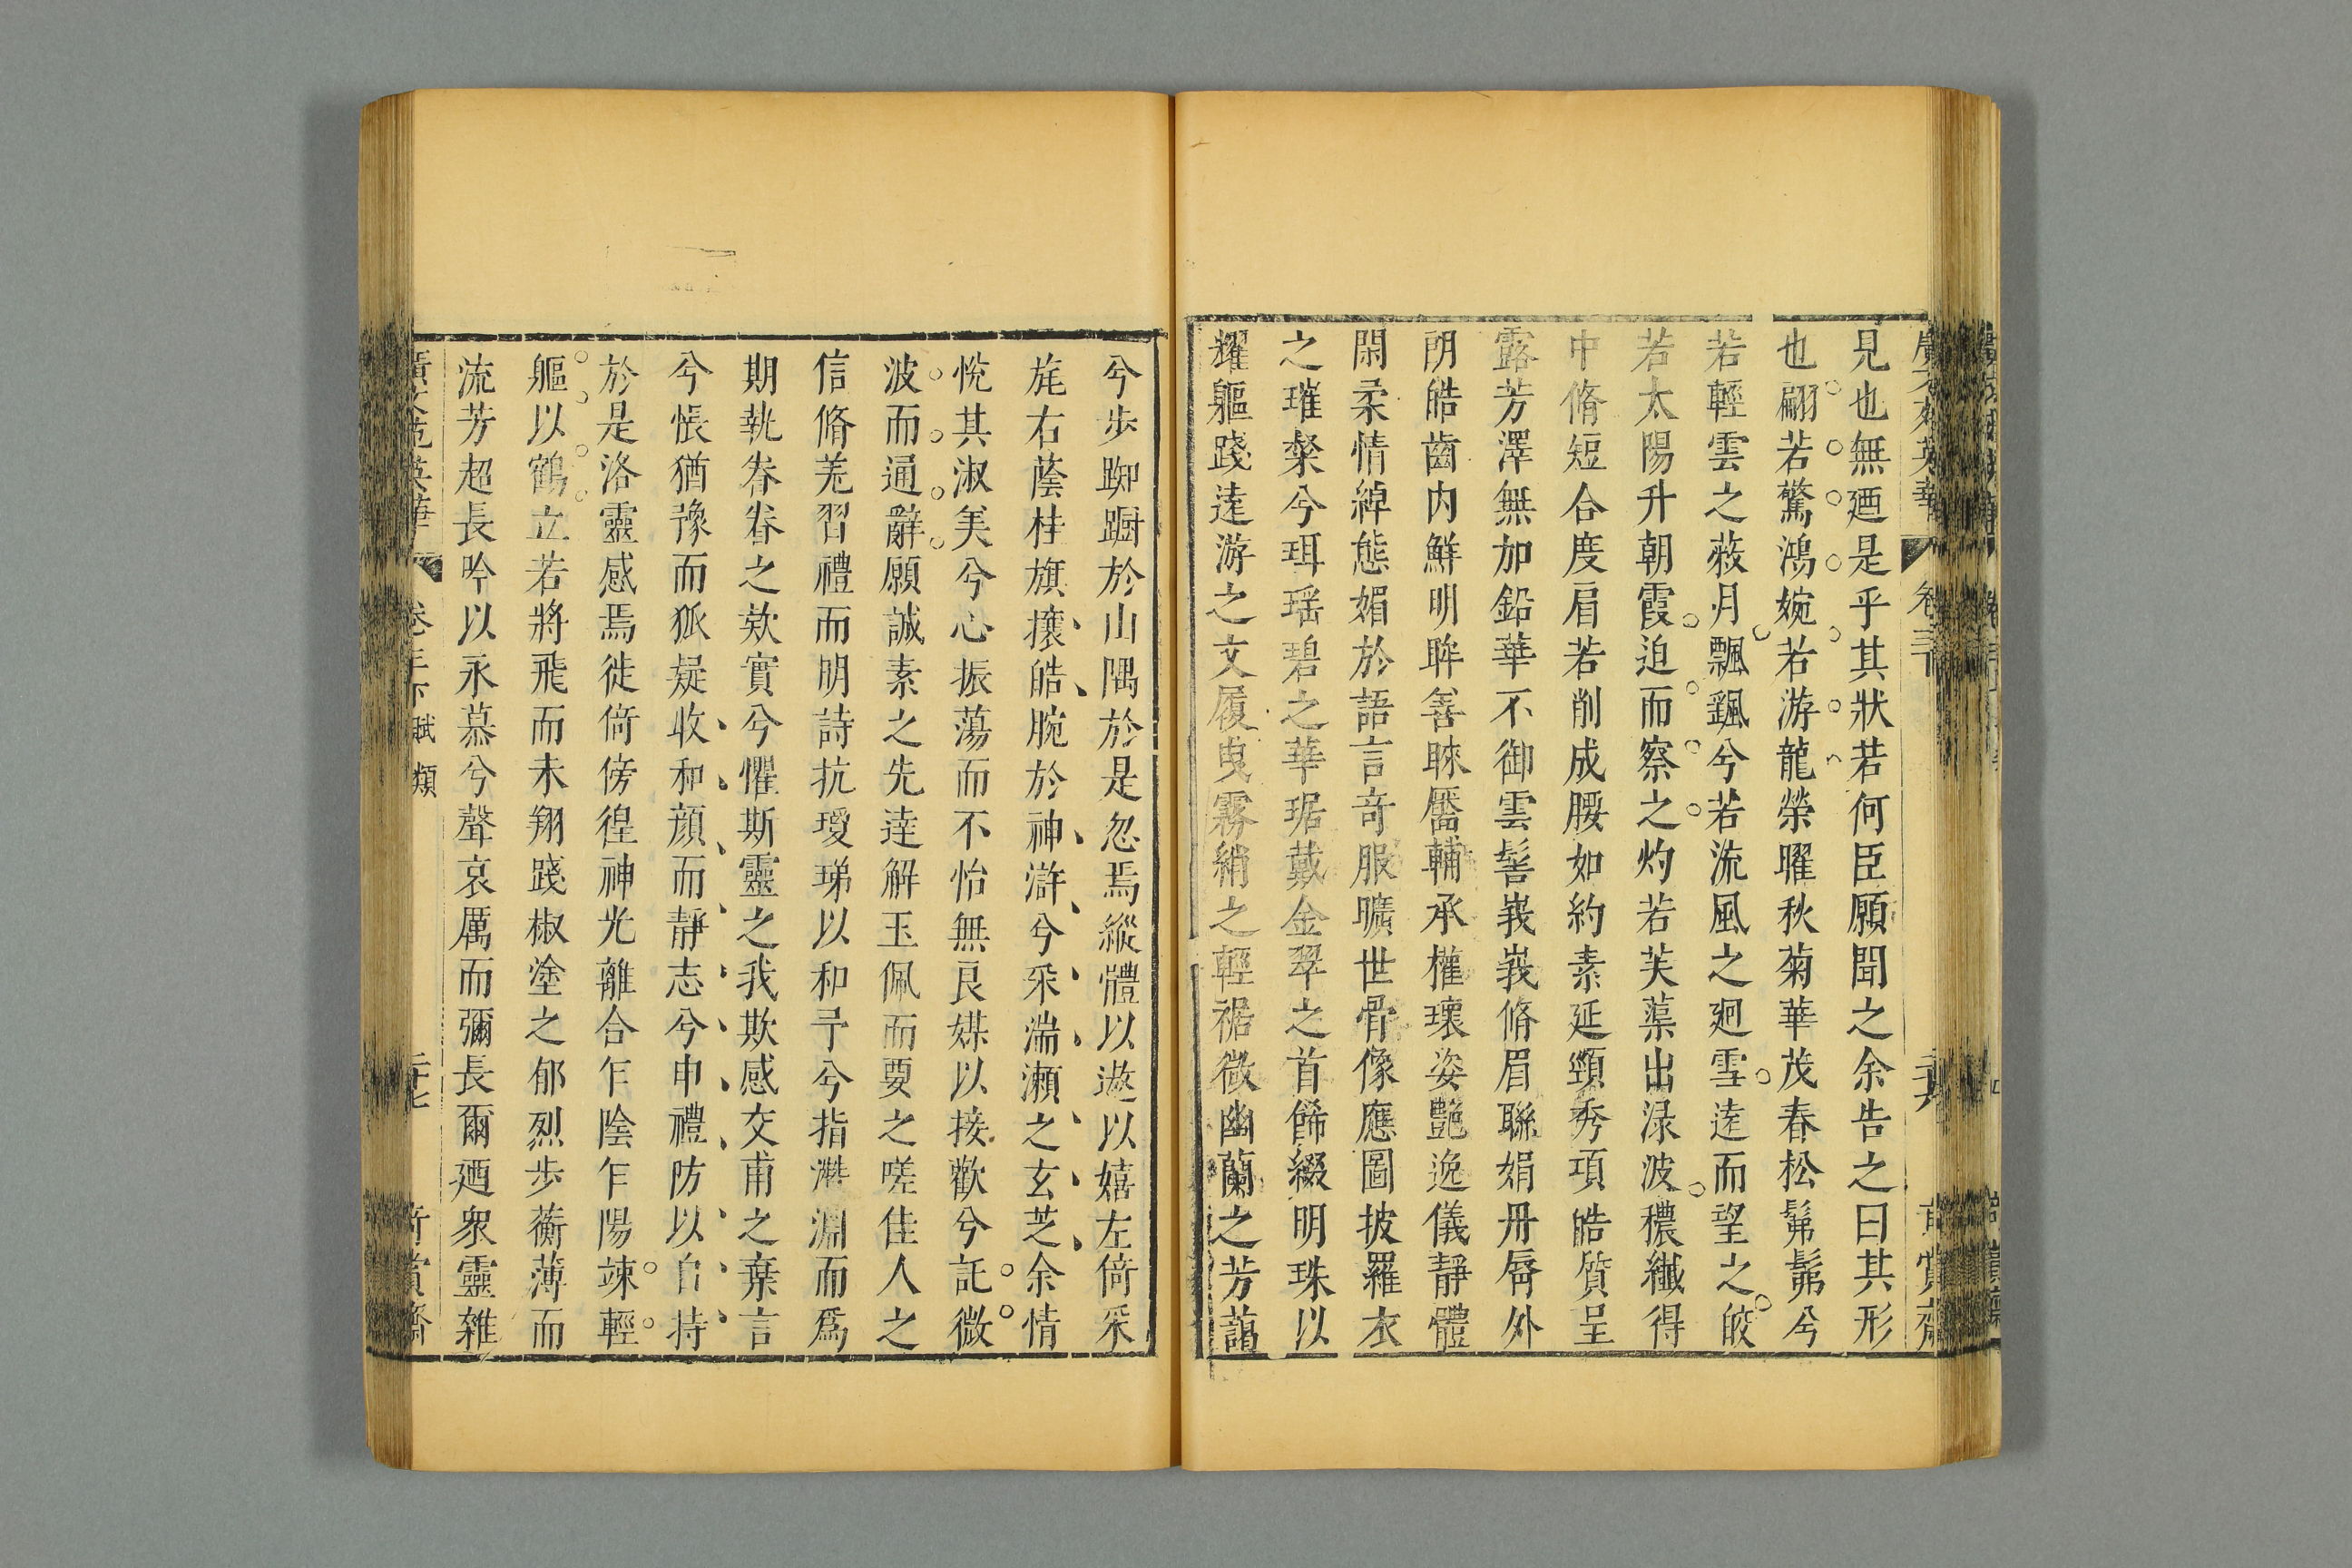 見也無廼是乎其狀若何臣願聞之余告之曰其形
也翩若驚鴻婉若游龍榮曜秋菊華茂春松髴髴兮
若輕雲之蔽月飄颻兮若流風之廻雪遠而望之皎
若太陽升朝霞迫而察之灼若芙蕖出淥波穠纖得
中脩短合度肩若削成腰如約素延頸秀項皓質呈
露芳澤無加鉛華不御雲髻峩峩脩眉聯娟丹唇外
朗皓齒内鮮明眸善睞靨輔承權瓌姿艷逸儀靜體
閑柔情綽態媚於語言奇服曠世骨像應圖披羅衣
之璀粲兮珥瑶碧之華琚戴金翠之首飾綴明珠以
耀軀踐遠游之文履曳霧綃之輕裾微幽蘭之芳藹
兮步踟蹰於山隅於是忽焉縱體以遨以嬉左倚采
旄右蔭桂旗攘皓腕於神滸兮采湍瀨之玄芝余情
悅其淑美兮心振蕩而不怡無良媒以接歡兮託微
波而通辭願誠素之先達解玉佩而要之嗟佳人之
信脩羌習禮而明詩抗瓊珶以和予兮指濳淵而爲
期執眷眷之欵實兮懼斯靈之我欺感交甫之棄言
兮悵猶豫而狐疑收和顔而靜志兮申禮防以自持
於是洛靈感焉徙倚傍徨神光離合乍陰乍陽竦輕
軀以鶴立若將飛而未翔踐椒塗之郁烈步蘅薄而
流芳超長吟以永慕兮聲哀厲而彌長爾廼衆靈雜
卷三下 賦類 二十七